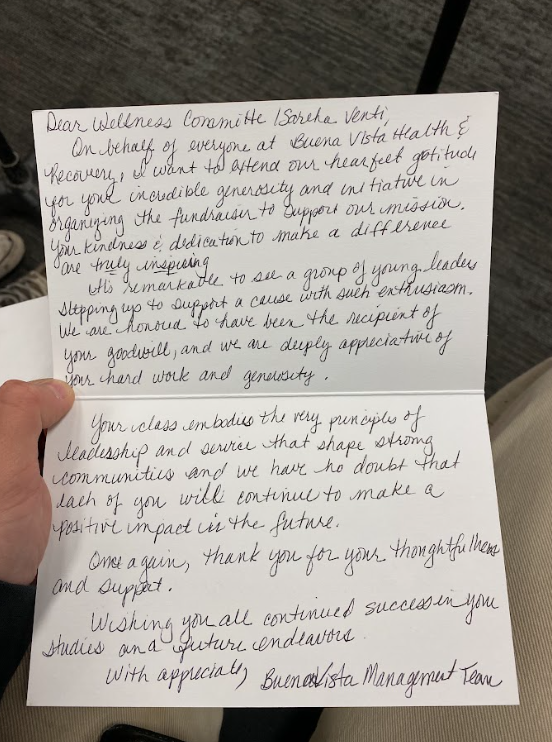 Dear Wellness Committe / Sareha Venti,
On behalf of everyone at Buena Vista Health &
Recovery, I want to extend our hearfeet gotitude
for your incredible generosity and initiative in
organizing the fundraiser to support our mission.
Your kindness & dedication to make a difference
are truly inspiring
It's remarkable to see a group of young leaders
stepping up to support a cause with such enthusiasm.
We are honoured to have been the recipient of
your goodwill, and we are deeply appreciative of
your hard work and generosity.
Your class embodies the very principles of
leadership and service that shape strong
communities and we have no doubt that
each of you will continue to make a
positive impact in the future.
Once again, thank you for your thoughtfulness
and support.
Wishing you all continued success in your
studies and future endeavors.
With appreciate, Buena Vista Management Team